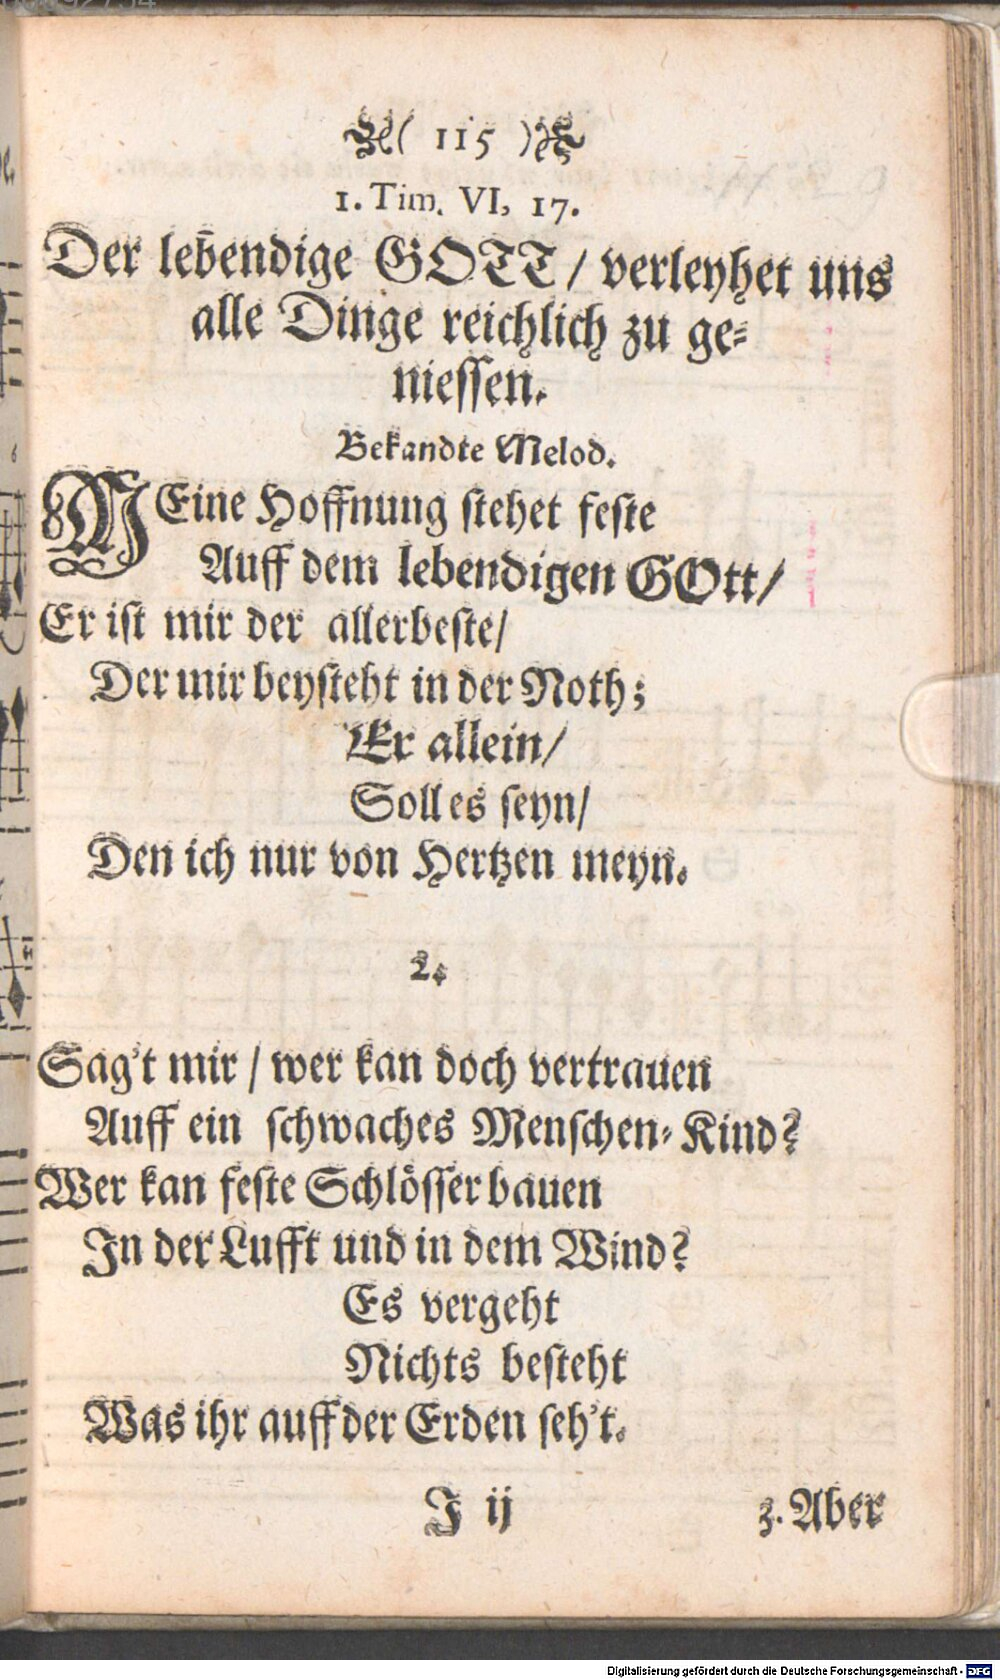 ( 115 )
1. Tim. VI, 17.
Der lebendige GOTT / verleyhet uns
alle Dinge reichlich zu ge-
niessen.
Bekandte Melod.
MEine Hoffnung stehet feste
Auff dem lebendigen GOtt/
Er ist mir der allerbeste/
Der mir beysteht in der Noth;
Er allein/
Soll es seyn/
Den ich nur von Hertzen meyn.
2.
Sag't mir / wer kan doch vertrauen
Auff ein schwaches Menschen-Kind?
Wer kan feste Schlösser bauen
In der Lufft und in dem Wind?
Es vergeht
Nichts besteht
Was ihr auff der Erden seh't.
J ij
3. Aber
Digitalisierung gefördert durch die Deutsche Forschungsgemeinschaft - DFG